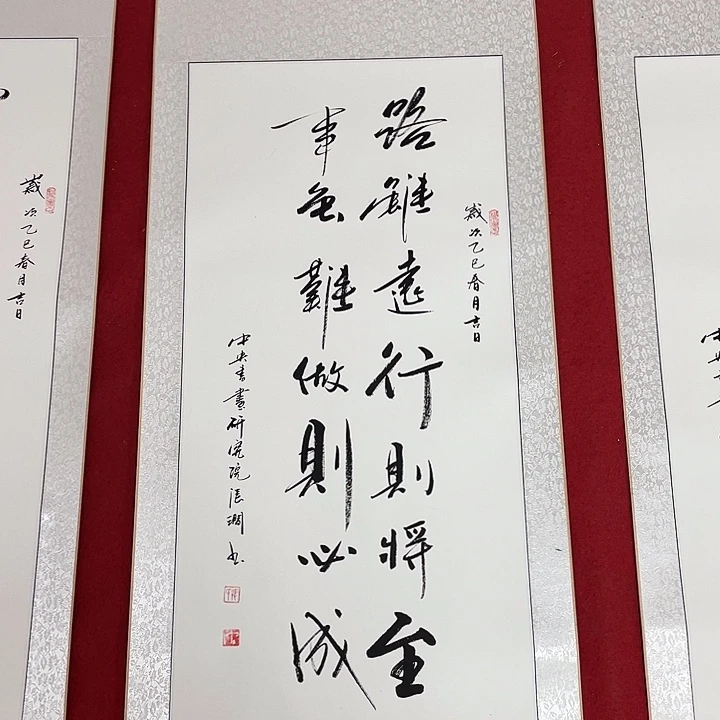 歲次乙巳春月吉日
路雖遠行則將至
事虽難做則必成
中央書畫研究院張书
歲次乙巳春月吉日